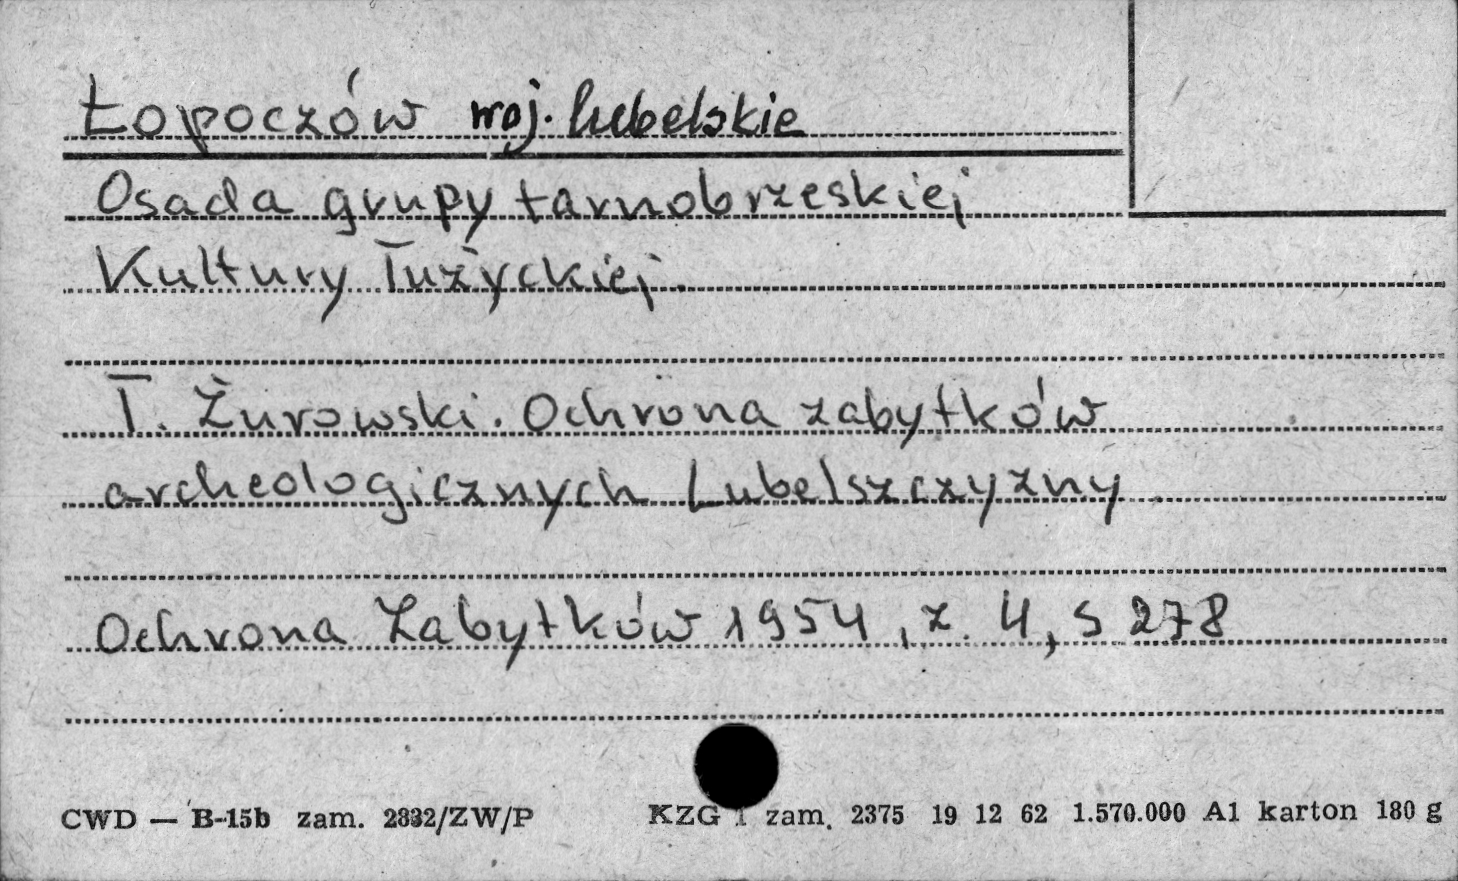 Łopoczów woj. lubelskie
Osada grupy tarnobrzeskiej
Kultury Łużyckiej.
T. Żurowski. Ochrona zabytków
archeologicznych Lubelszczyzny
Ochrona Zabytków 1954, z. 4, s 278
CWD — B-15b zam. 2832/ZW/P KZG 1 zam. 2375 19 12 62 1.570.000 A1 karton 180 g